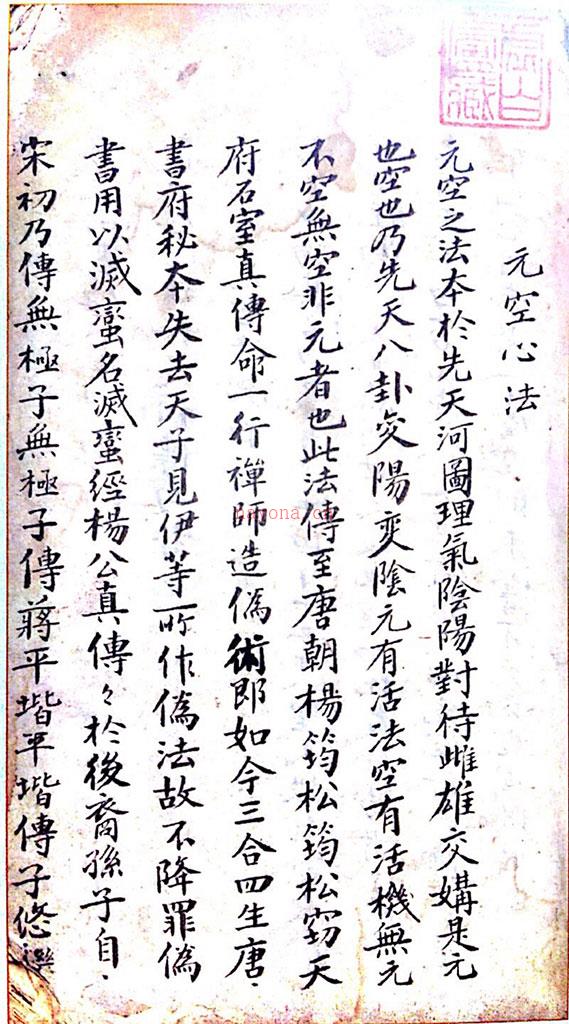 元空心法
元空之法本於先天河圖理氣陰陽對待雌雄交媾是元
也空也乃先天八卦交陽変陰元有活法空有活機無元
不空無空非元者也此法傳至唐朝楊筠松筠松窃天
府石室真傳命一行禪師造偽術即如今三合四生唐
書府秘本失去天子見伊等所作偽法故不降罪偽
書用以滅蠻名滅蠻經楊公真傳々於後裔孫子自
宋初乃傳無極子無極子傳蔣平堦平堦傳子悠